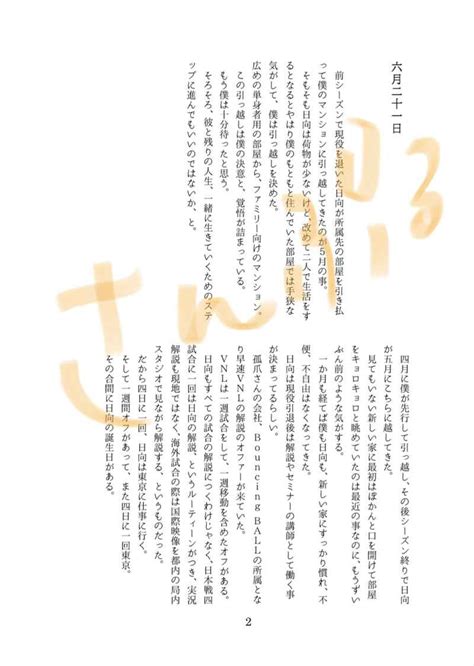 六月二十一日
前シーズンで現役を退いた日向が所属先の部屋を引き払
って僕のマンションに引っ越してきたのが５月の事。
そもそも日向は荷物が少ないけど、改めて二人で生活をす
るとなるとやはり僕のもともと住んでいた部屋では手狭な
気がして、僕は引っ越しを決めた。
広めの単身者用の部屋から、ファミリー向けのマンション。
この引っ越しは僕の決意と、覚悟が詰まっている。
もう僕は十分待ったと思う。
そろそろ、彼と残りの人生、一緒に生きていくためのステ
ップに進んでもいいのではないか、と。
四月に僕が先行して引っ越し、その後シーズン終りで日向
が五月にこちらに越してきた。
見てもいない新しい家に最初はぽかんと口を開けて部屋
をキョロキョロと眺めていたのは最近の事なのに、もうずい
ぶん前のような気がする。
一か月も経てば僕も日向も、新しい家にすっかり慣れ、不
便、不自由はなくなってきた。
日向は現役引退後は解説やセミナーの講師として働く事
が決まってるらしい。
孤爪さんの会社、Ｂｏｕｎｃｉｎｇ ＢＡＬＬの所属とな
り早速ＶＮＬの解説のオファーが来ていた。
ＶＮＬは一週試合をして、一週移動を含めたオフがある。
日向もすべての試合の解説につくわけじゃなく、日本戦四
試合に一回は日向の解説、というルーティーンがつき、実況
解説も現地ではなく、海外試合の際は国際映像を都内の局内
スタジオで見ながら解説する、というものだった。
だから四日に一回、日向は東京に仕事に行く。
そして一週間オフがあって、また四日に一回東京。
その合間に日向の誕生日がある。
2